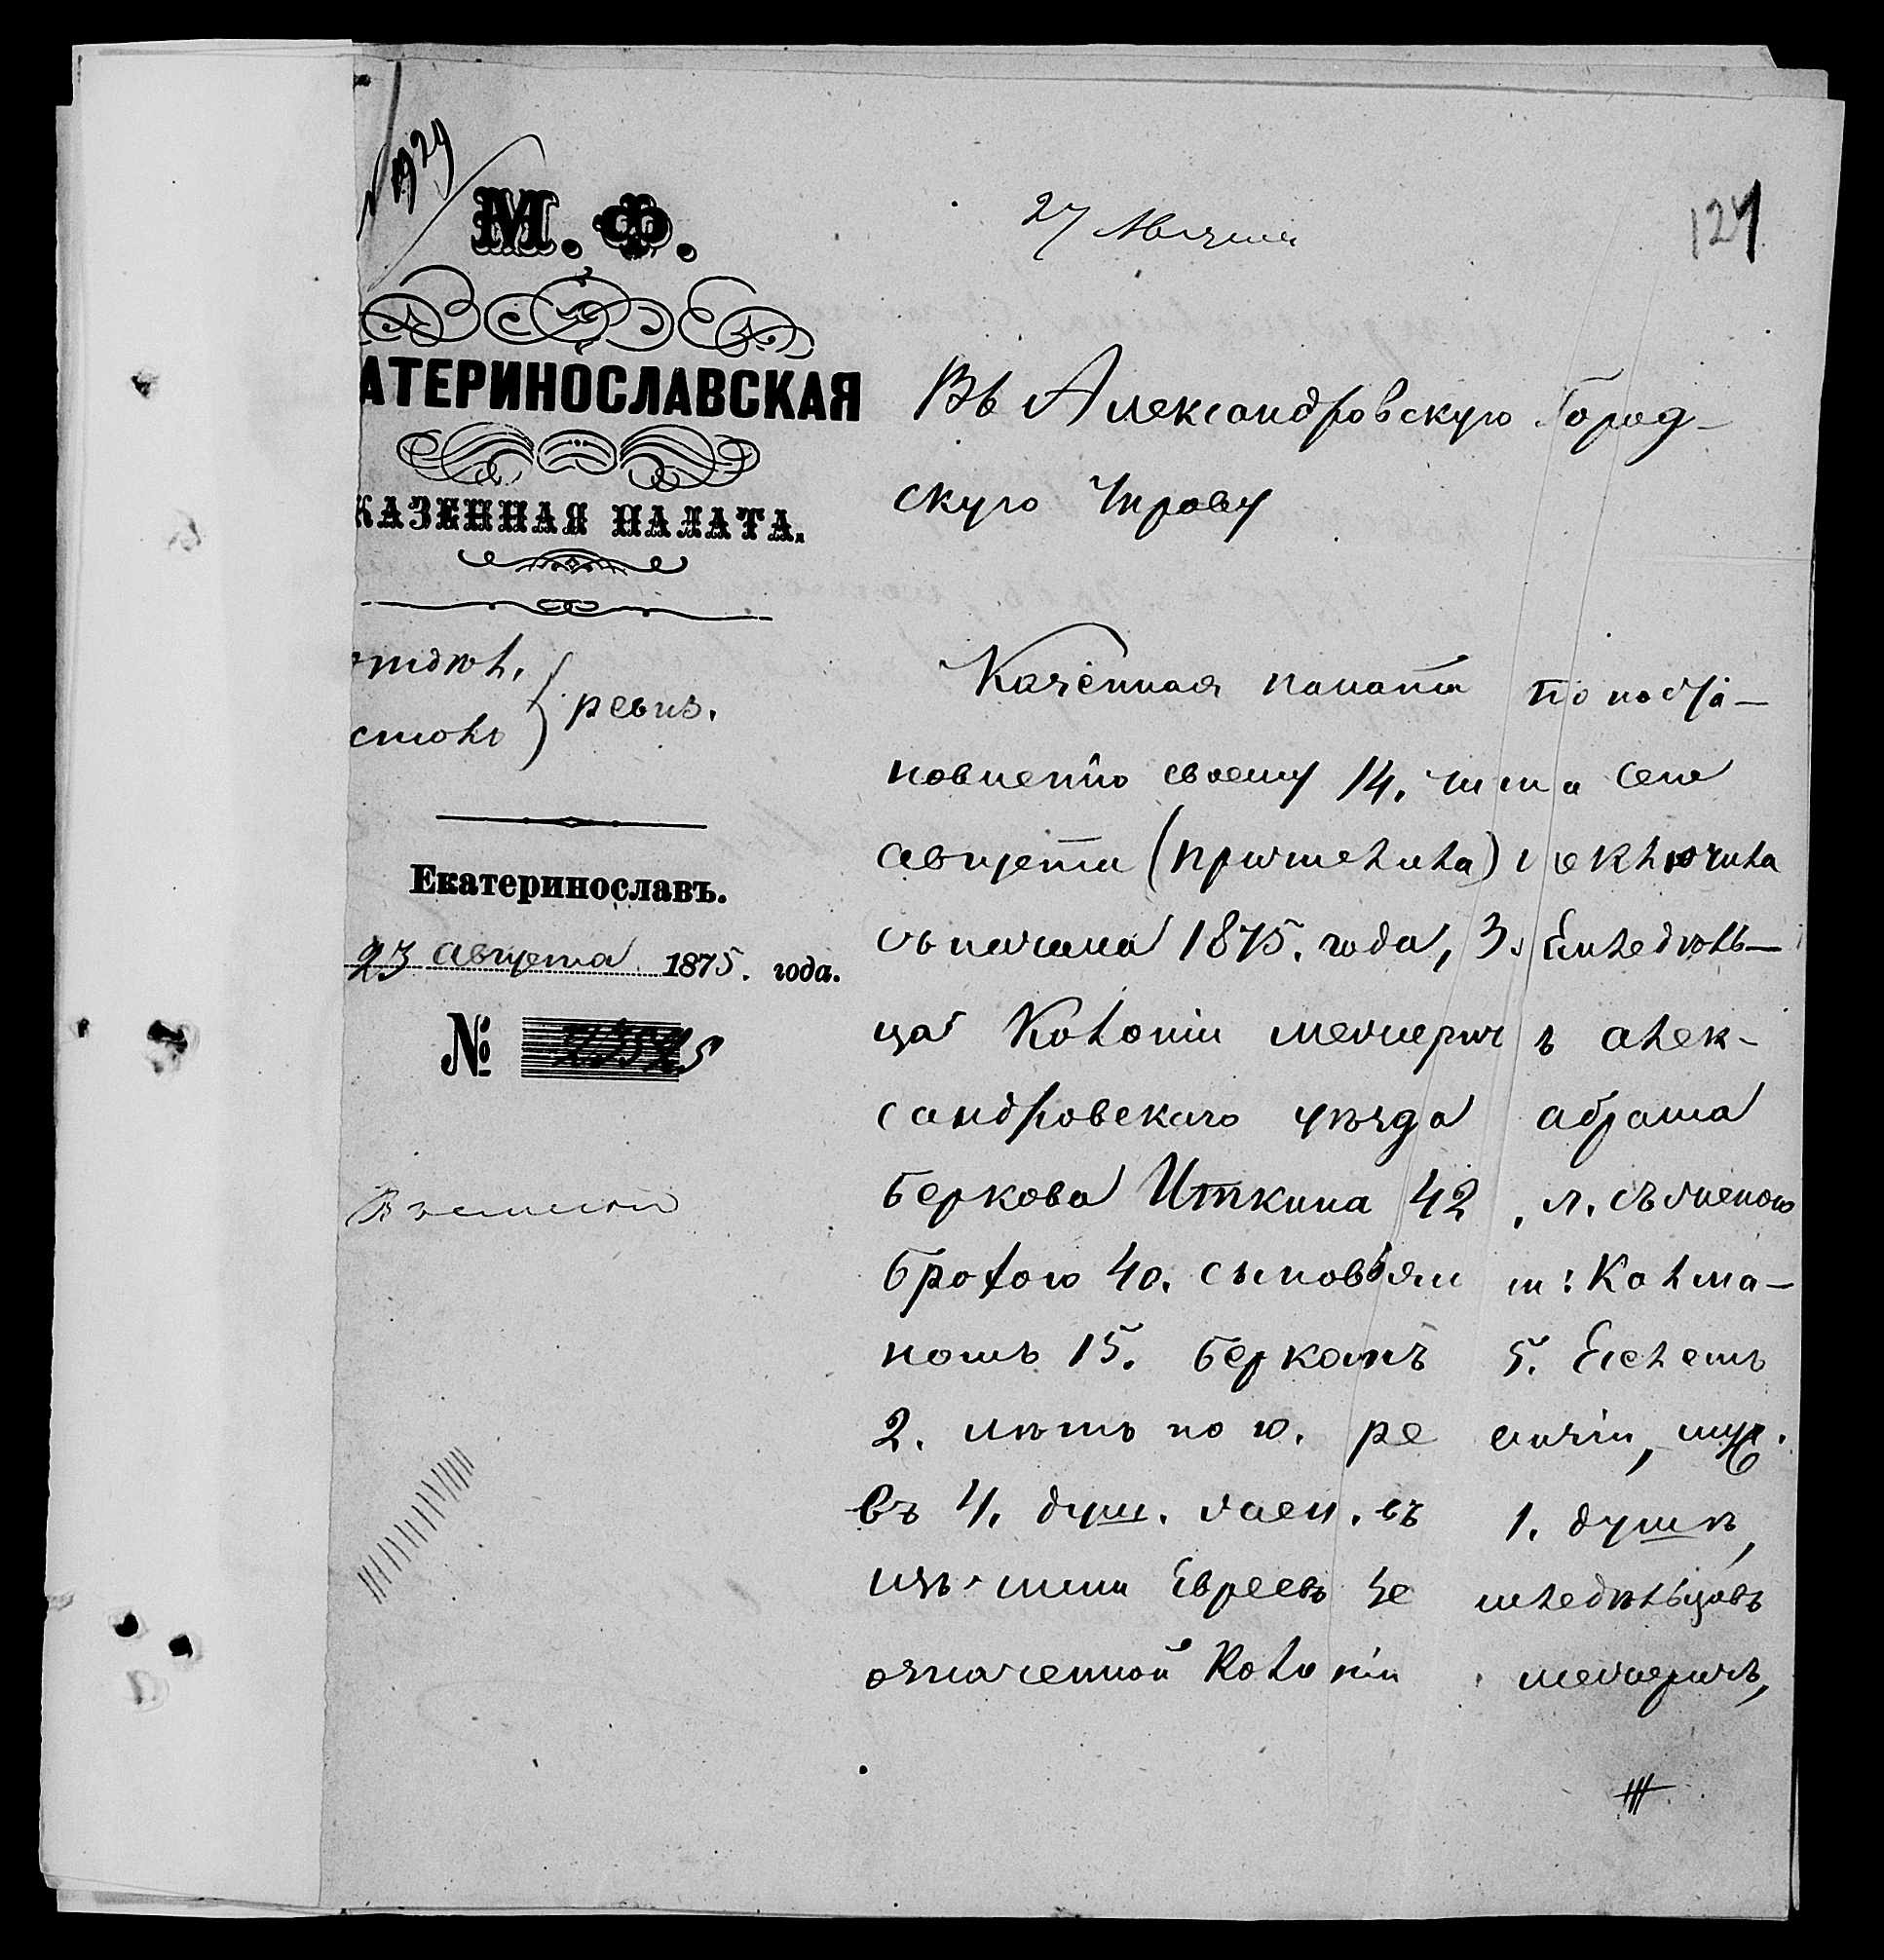 № 1929
М. Ф.
АТЕРИНОСЛАВСКАЯ
КАЗЕННАЯ ПАЛАТА.
отдѣл.
столъ
ревиз.
Екатеринославъ.
23 августа 1875. года.
№
27 Августа
127
Въ Александровскую Город-
скую Управу
Казенная палата по поста-
новленію своему 14. числа сего
августа (причислила) исключила
съ начала 1875. года, Земледѣль-
ца Колоніи Межиричъ Алек-
сандровскаго уѣзда Абрама
Беркова Иткина 42. л. съ женою
Брохою 40. сыновьями: Калма-
номъ 15. Беркомъ 5.
2. лѣтъ по 10. ревизіи, муж.
въ 4. душ. жен. въ 1. душѣ,
изъ Евреевъ Земледѣльцовъ
означенной Колоніи Межиричъ,